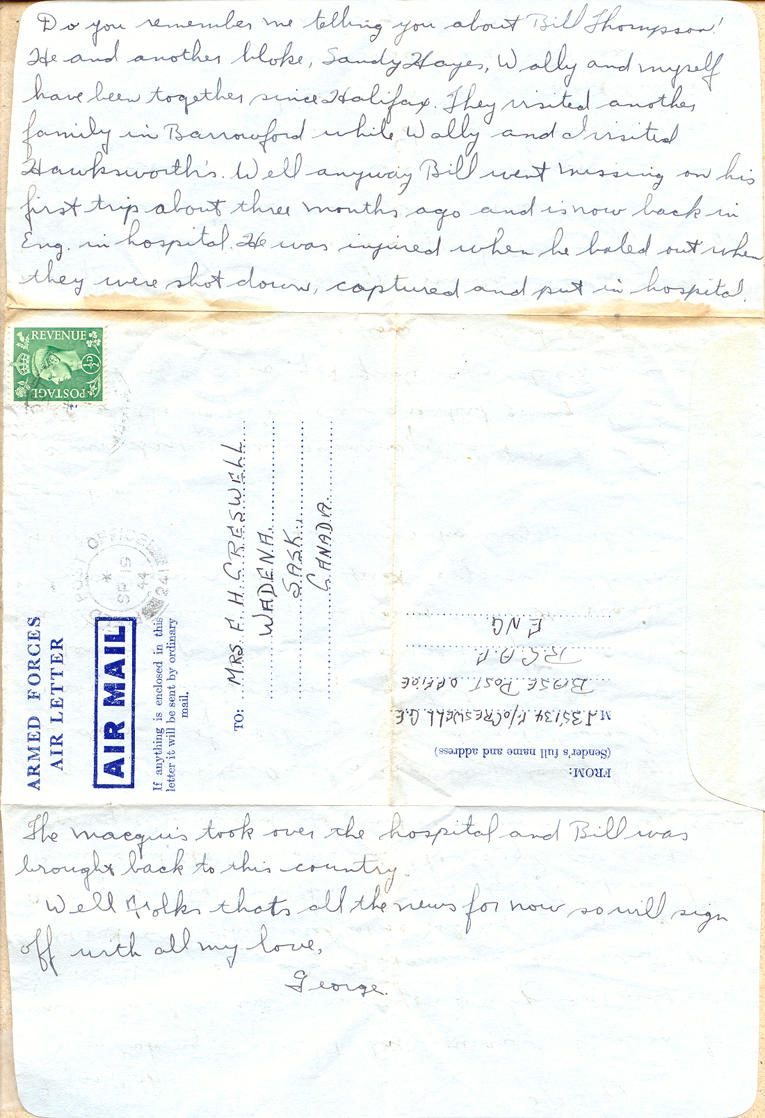 Do you remember me telling you about Bill Thompson!
He and another bloke, Sandy Hayes, Wally and myself
have been together since Halifax. They visited another
family in Barrowford while Wally and I visited
Hawksworth's. Well anyway Bill went missing on his
first trip about three months ago and is now back in
Eng. in hospital. He was injured when he baled out when
they were shot down, captured and put in hospital.
REVENUE
POSTAGE
½D
POST OFFICE
SP 19
44
241
ARMED FORCES
AIR LETTER
AIR MAIL
If anything is enclosed in this
letter it will be sent by ordinary
mail.
TO: MRS. F. H. CRESWELL
WADENA.
SASK.
CANADA.
FROM:
(Sender's full name and address)
F/O CRESWELL G.E.
BASE POST OFFICE
R.C.A.F.
ENG
The macquis took over the hospital and Bill was
brought back to this country.
Well folks thats all the news for now so will sign
off with all my love,
George.